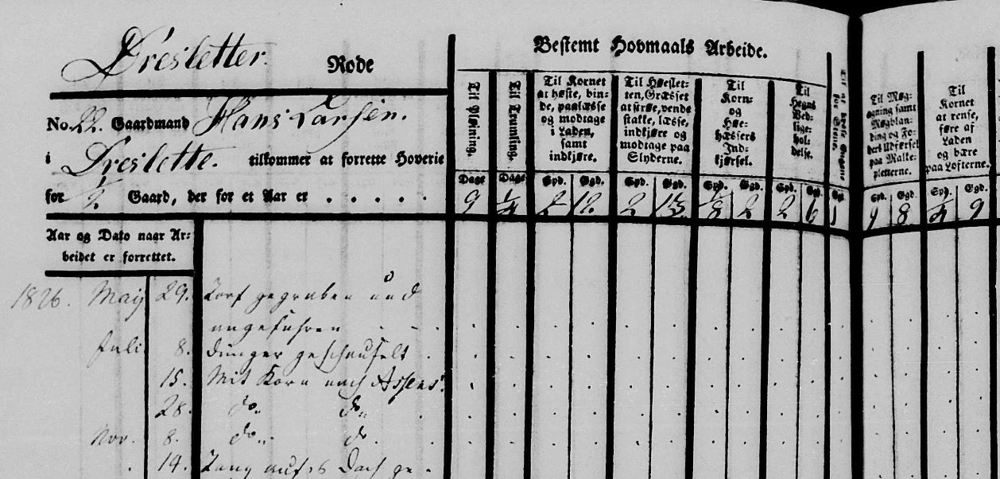 Dresletter Rode
No. 22. Gaardmand Hans Larsen.
i Dreslette. tilkommer at forrette Hoverie
for Gaard, der for et Aar er . . . . .
Aar og Dato naar Ar-
beidet er forrettet.
Bestemt Hovmaals Arbeide.
Til Pløining.
Til Tromling.
Til Kornet
at høste, bin-
de, paalæsse
og modtage
i Laden,
samt
indkjøre.
Til Høeslet-
ten, Græsset
at strøe, vende
stakke, læsse,
indkjøre og
modtage paa
Stederne.
Til
Korn-
og
Høe-
hæssers
Ind-
kjørsel.
Til
Hegns
Ved-
lige-
hol-
delse.
Til Møg-
agning samt
Møgblan-
ding og Jo-
rds Udførsel
paa
Til
Kornet
at rense,
føre af
Laden
og bære
paa Lofterne.
Dage Dage Spd. Ggd. Spd. Ggd. Spd. Ggd. Spd. Ggd. Spd. Ggd. Spd. Ggd.
9 2 1/8 2 2 6 1 9 8 9
1826. May 29. Torf gegraben und
angefahren
Juli 8. Dünger geschaufelt
15. Mit Korn nach Assens.
28. do. do.
Nov. 8. do. do
14. Tang aufs Dach ge-